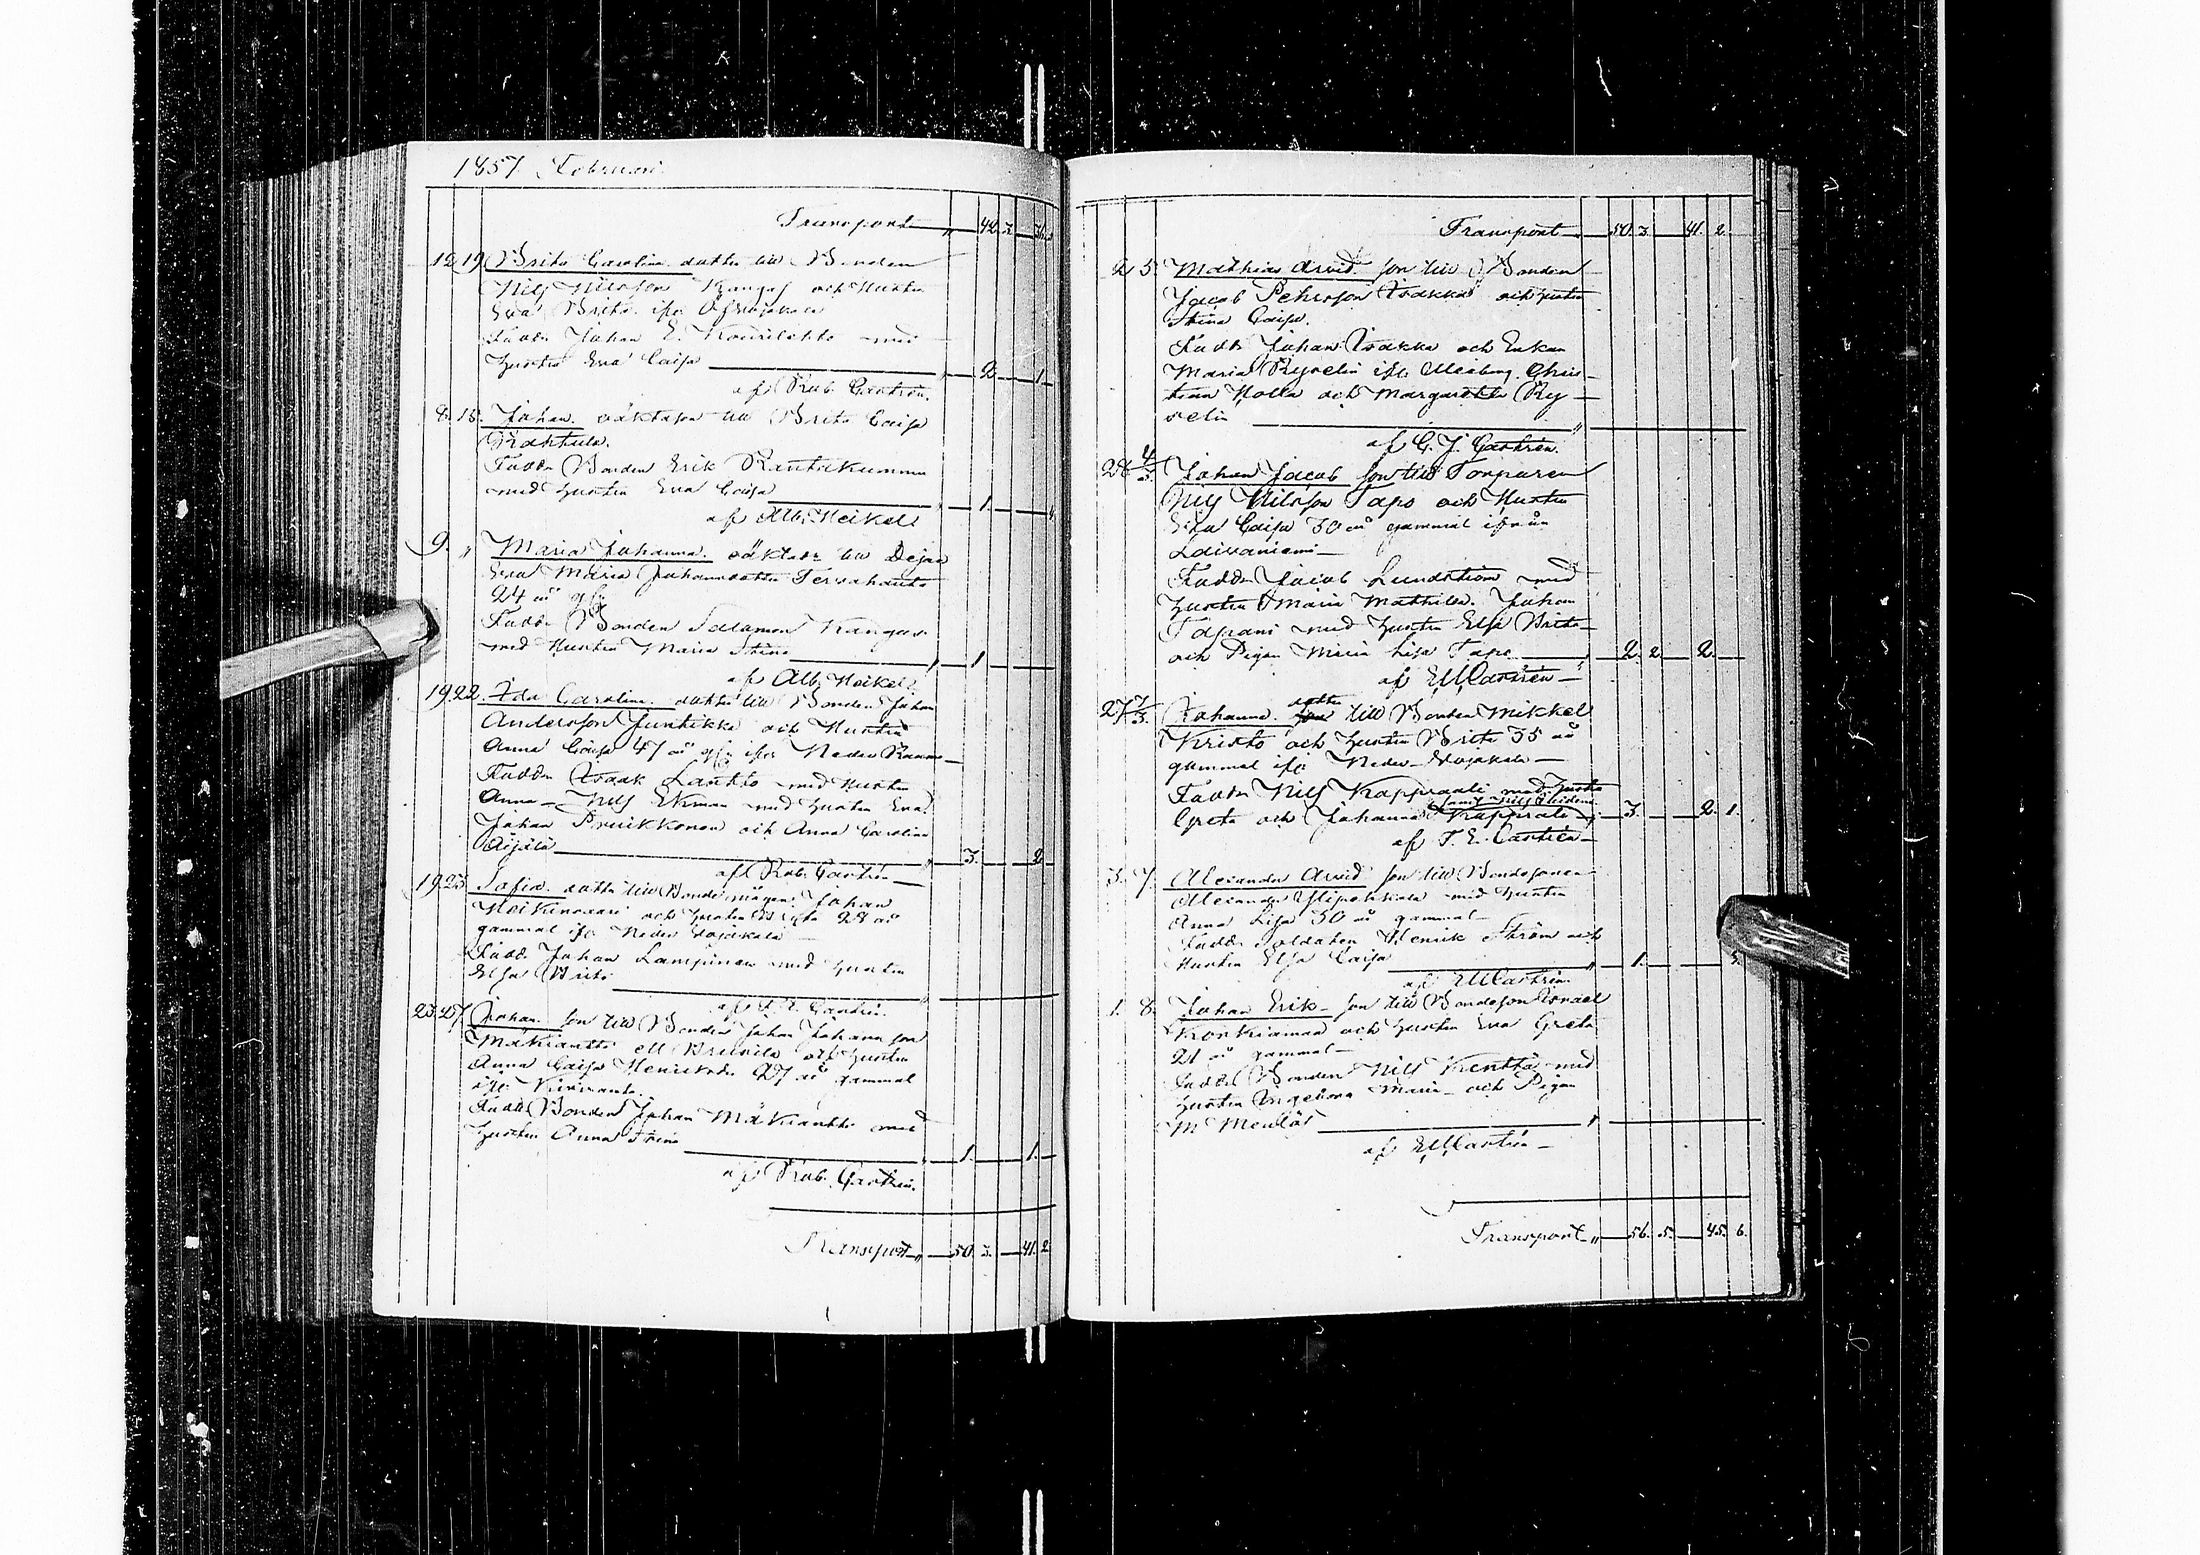 1857. Februari
Transport 42. 3. 31.
12 19 Brita Carolina dotter till Bonden
Nils Nilsson Kangas och Hustru
Eva Brita ifr
Fadd. Johan E. Kourilehto med
hustru Eva Caisa 2 1
af Rob. Castrén.
8 15. Johan. oäktason till Brita Caisa
Fadd. Bonden Erik Rautakumma
med hustru Eva Caisa 1.
af Alb. Heikel
9. " Maria Johanna. oäkta dr till Pigan
Eva Maria Johansdotter Tervahauta
24 år
Fadd. Bonden Salamon Kangas
med Hustru Maria Stina 1
af Alb. Heikel.
19 22. Ida Carolina dotter till Bonden Johan
Andersson Juntikka och Hustru
Anna Caisa 47 år ifr Neder
Fadd. Isaak Lantto med Hustru
Anna Nils Ekman med hustru Eva.
Johan Pruikkonen och Anna Carolina
Äijälä 3. 2
af Rob. Castrén
19 23 Sofia. dotter till Bondemågen Johan
och hustru 28 år
gammal ifr Neder
Fadd. Johan Lampinen med hustru
Elsa Brita
af T. E. Castrén.
23 27 Johan. son till Bonden Johan Johansson
Mäkiantti och hustru
Anna Caisa Henriksdr 27 år gammal
ifr
Fadd. Bonden Johan Mäkiantti med
hustru Anna Stina 1. 1.
af Rob. Castrén.
Transport 50. 3. 41. 2
Transport 50. 3. 41. 2.
2 5. Mathias Arvid. son till Bonden
Jacob Pehrsson Isakka och hustru
Stina Caisa.
Fadd. Johan Isakka och Enkan
Maria Ryselin ifr Uleåborg. Chris-
tian Holla och Margaretha Ry-
selin
af C. J. Castrén.
28 4/3 Johan Jacob son till Torparen
Nils Nilsson Tapo och Hustru
Caisa 30 år gammal ifrån
Laivaniemi
Fadd. Jacob Lundström med
hustru Maria Mathilda. Johan
Tapani med hustru Elsa Brita
och Pigan Maria Lisa Tapo 2. 2. 2.
af E M Castrén
27 7/3. Johanna. dotter till Bonden Mikkel
Kristo och hustru Brita 35 år
gammal ifr Neder
Fadd. Nils Kappraali med hustru
Greta och Johanna Kappraali 3. 2. 1.
af T. E. Castrén
3. 7. Alexander Arvid son till Bondesonen
Alexander med hustru
Anna Lisa 30 år gammal
Fadd. soldaten Henrik Ström och
Hustru Elsa Caisa 1. 3.
af E M Castrén
1. 8. Johan Erik son till Bondeson Israel
Korkiamaa och hustru Eva Greta
21 år gammal
Fadd. Bonden Nils Kenttä med
hustru Maria och Pigan
M
af E M Castrén
Transport 56. 5. 45. 6.